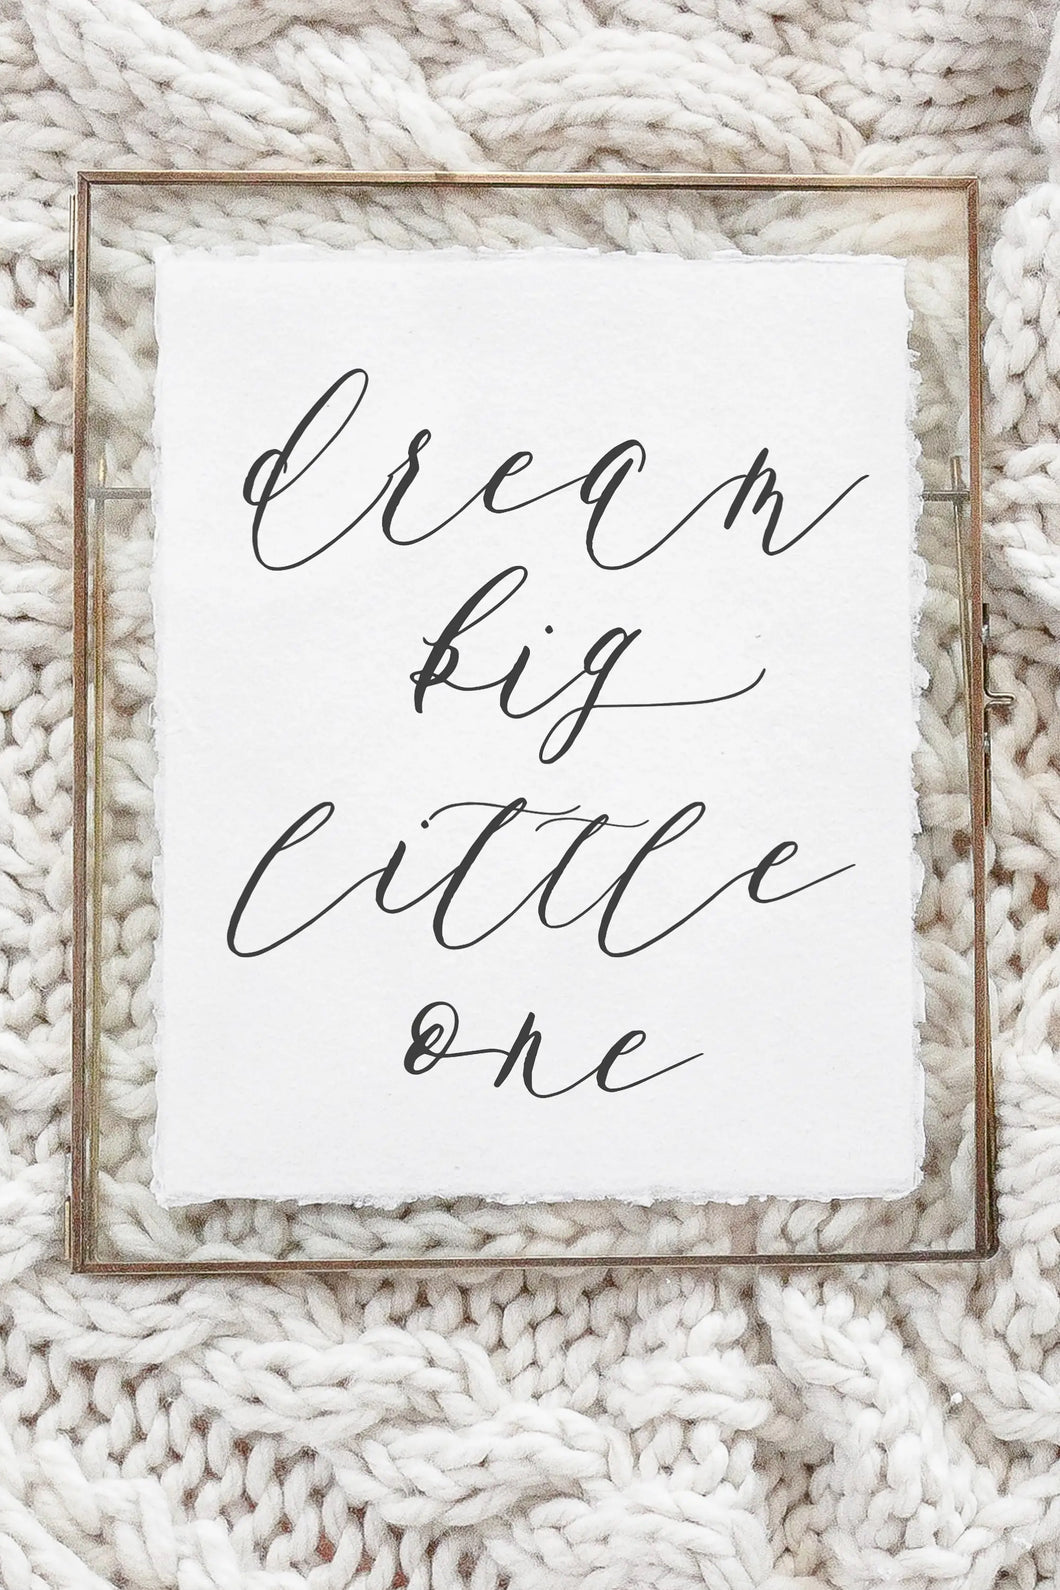 dream
big
little
one